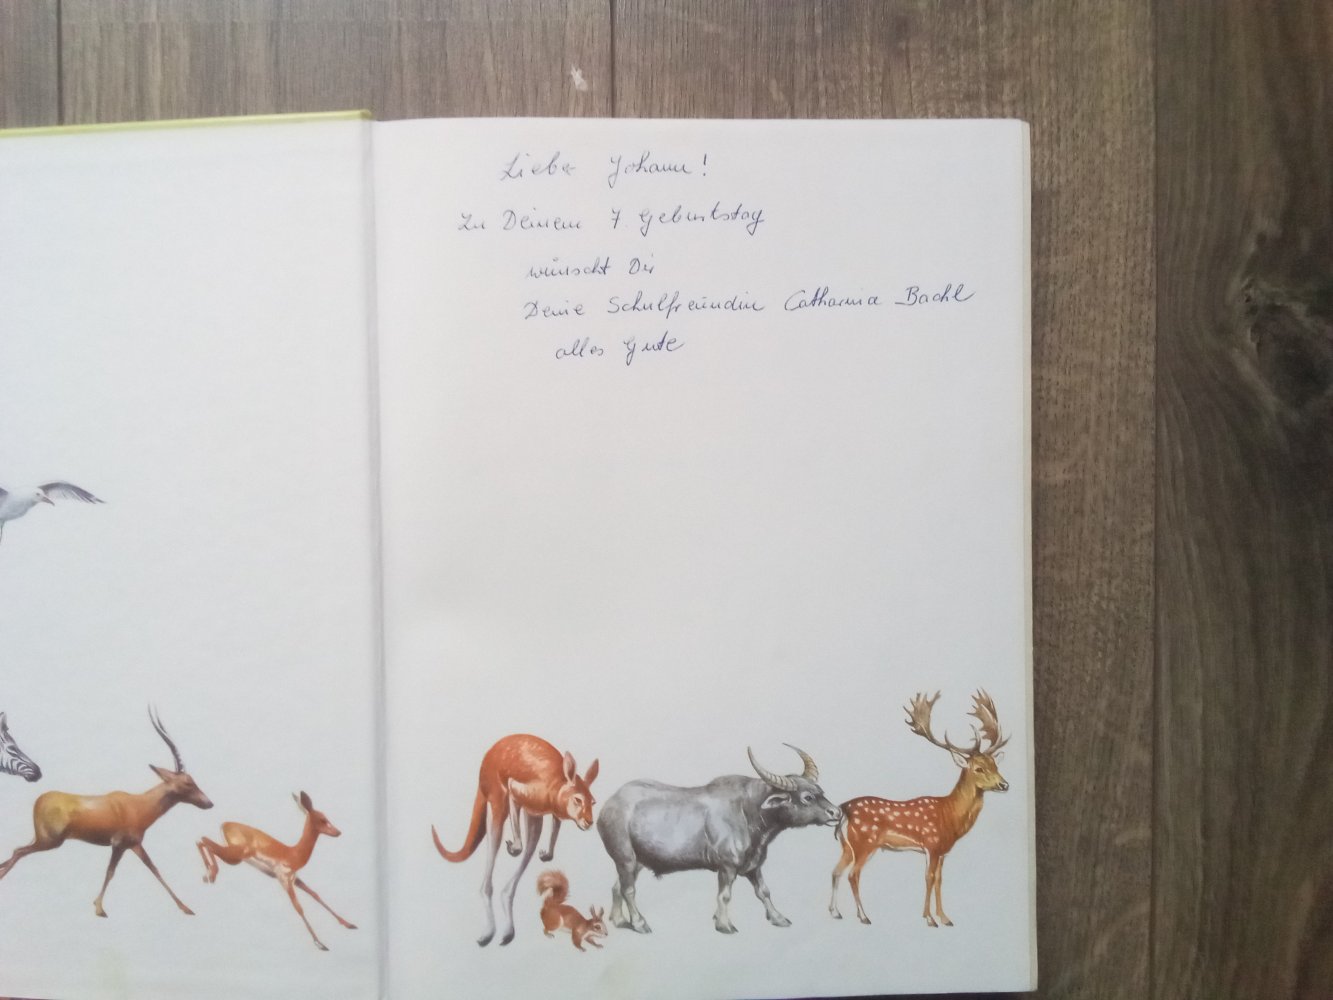 Lieber Johann!
Zu Deinem 7. Geburtstag
wünscht Dir
Deine Schulfreundin Catharina Bachl
alles Gute